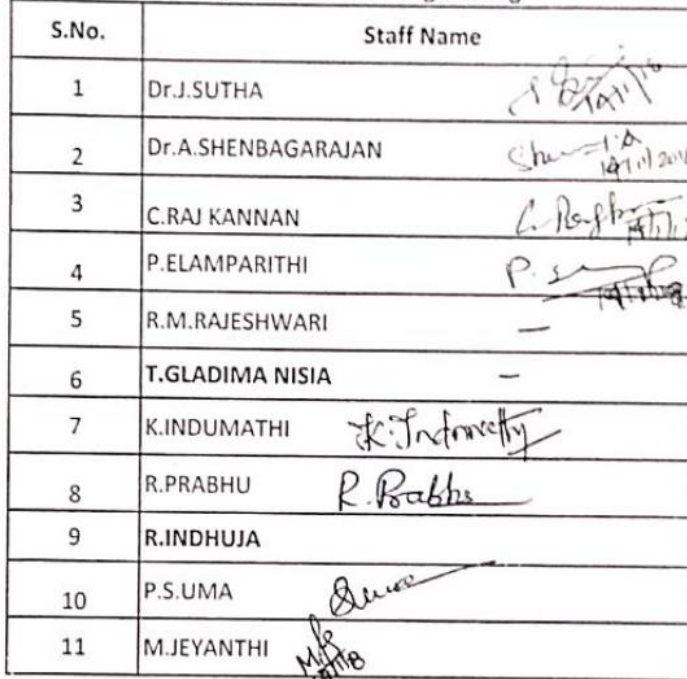 S.No. Staff Name
1 Dr.J.SUTHA
2 Dr.A.SHENBAGARAJAN
3 C.RAJ KANNAN
4 P.ELAMPARITHI
5 R.M.RAJESHWARI –
6 T.GLADIMA NISIA –
7 K.INDUMATHI K.Indumathy
8 R.PRABHU R.Prabhu
9 R.INDHUJA
10 P.S.UMA
11 M.JEYANTHI